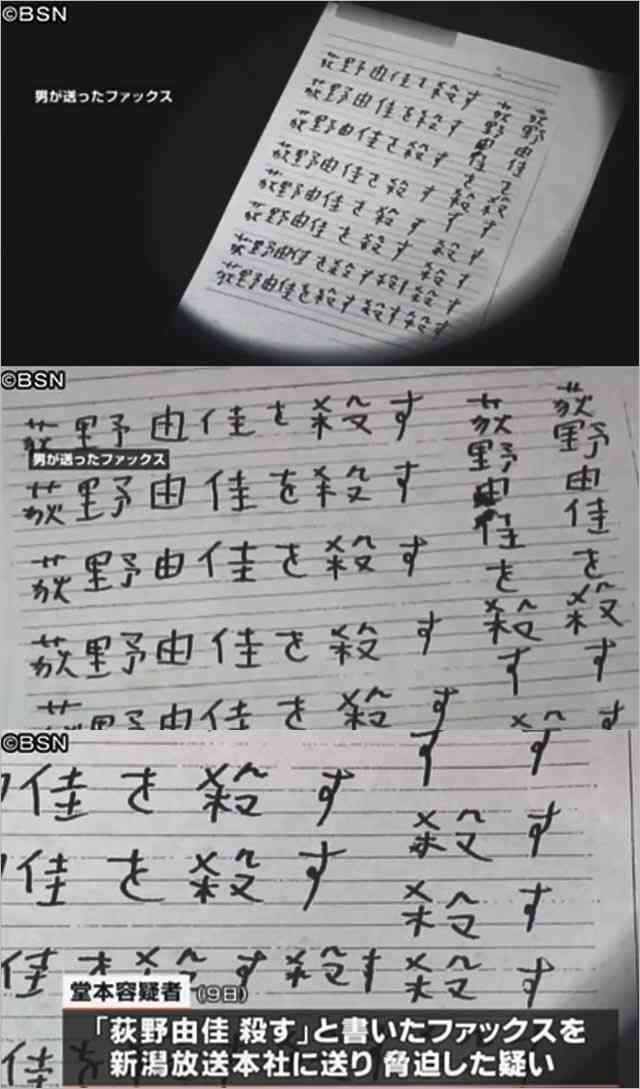 ©BSN
男が送ったファックス
荻野由佳を殺す
荻野由佳を殺す
荻野由佳を殺す
荻野由佳を殺す
荻野由佳を殺す
荻野由佳を殺す
荻野由佳を殺す殺す殺す
荻野由佳を殺す殺す殺す
荻野由佳を殺す
荻野由佳を殺す
殺す
殺す
©BSN
荻野由佳を殺す
男が送ったファックス
荻野由佳を殺す
荻野由佳を殺す
荻野由佳を殺す
荻野由佳を殺す
荻野由佳を殺す
荻野由佳を殺す
殺す
©BSN
佳を殺す
佳を殺す
佳を殺す殺す殺す
佳
す
す
殺す
殺す
堂本容疑者(9日)
「荻野由佳 殺す」と書いたファックスを
新潟放送本社に送り 脅迫した疑い